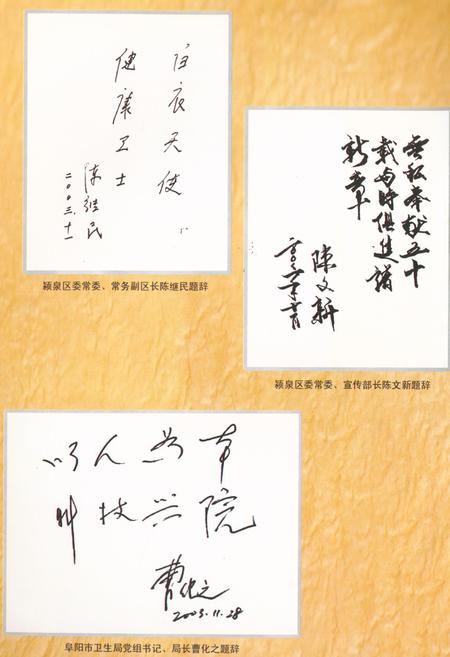 白衣天使
健康卫士
陈继民
二〇〇三.十一
颍泉区委常委、常务副区长陈继民题辞
无私奉献五十
载与时俱进谱
新章
陈文新
颍泉区委常委、宣传部长陈文新题辞
以人为本
科技兴院
曹化之
2003.11.28
阜阳市卫生局党组书记、局长曹化之题辞